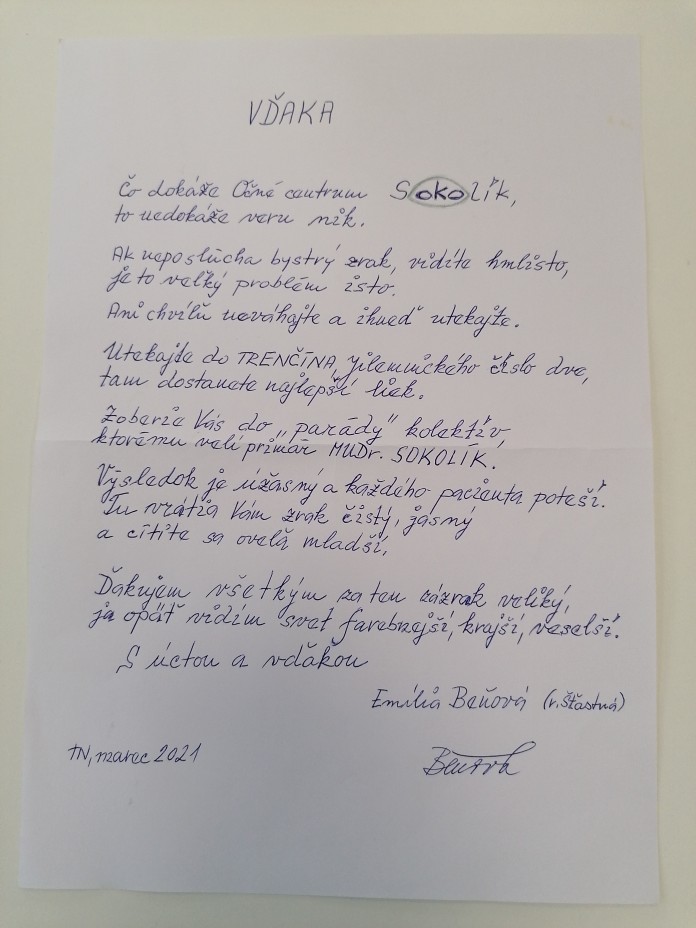 VĎAKA
Čo dokáže Očné centrum Sokolík,
to nedokáže veru nik.
Ak neposlúcha bystrý zrak, vidíte hmlisto,
je to veľký problém isto.
Ani chvíľu neváhajte a ihneď utekajte.
Utekajte do TRENČÍNA, Jilemnického číslo dve,
tam dostanete najlepší liek.
Zoberie Vás do „parády" kolektív,
ktorému velí primár MUDr. SOKOLÍK.
Výsledok je úžasný a každého pacienta poteší.
Tu vrátia Vám zrak čistý, jasný
a cítite sa oveľa mladší,
Ďakujem všetkým za ten zázrak veliký,
ja opäť vidím svet farebnejší, krajší, veselší.
S úctou a vďakou
Emília Beňová (r. Šťastná)
TN, marec 2021
Beňová